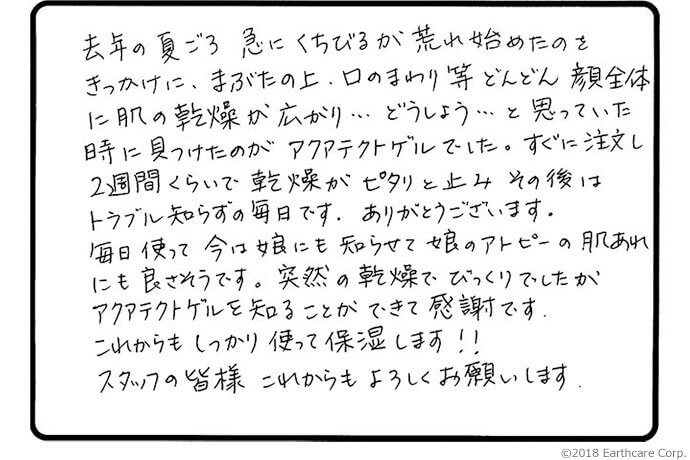 去年の夏ごろ 急にくちびるが 荒れ始めたのを
きっかけに、まぶたの上、口のまわり等 どんどん 顔全体
に肌の乾燥が広がり…どうしよう…と思っていた
時に見つけたのが アクアテクトゲルでした。すぐに注文し
2週間くらいで乾燥がピタリと止み その後は
トラブル知らずの毎日です. ありがとうございます。
毎日使って今は娘にも知らせて娘のアトピーの肌あれ
にも良さそうです。突然の乾燥でびっくりでしたが
アクアテクトゲルを知ることができて感謝です.
これからもしっかり使って保湿します!!
スタッフの皆様 これからもよろしくお願いします.
©2018 Earthcare Corp.